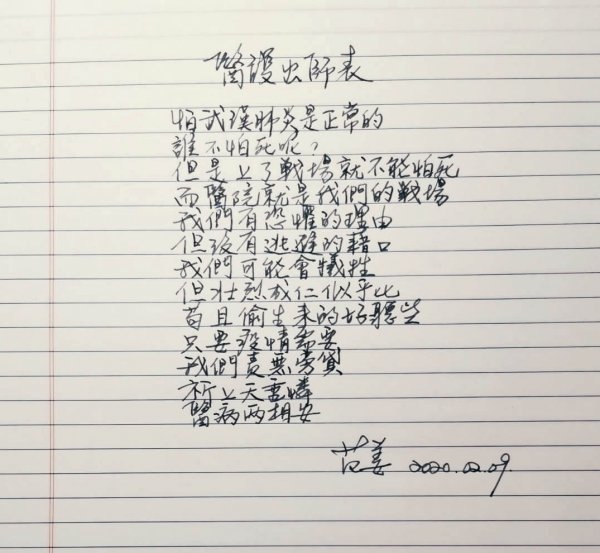 醫護出師表
怕武漢肺炎是正常的
誰不怕死呢?
但是上了戰場就不能怕死
而醫院就是我們的戰場
我們有恐懼的理由
但沒有逃避的藉口
我們可能會犧牲
但壯烈成仁似乎比
苟且偷生來的好聽些
只要疫情需要
我們責無旁貸
祈上天垂憐
醫病兩相安
范姜 2020.02.09.